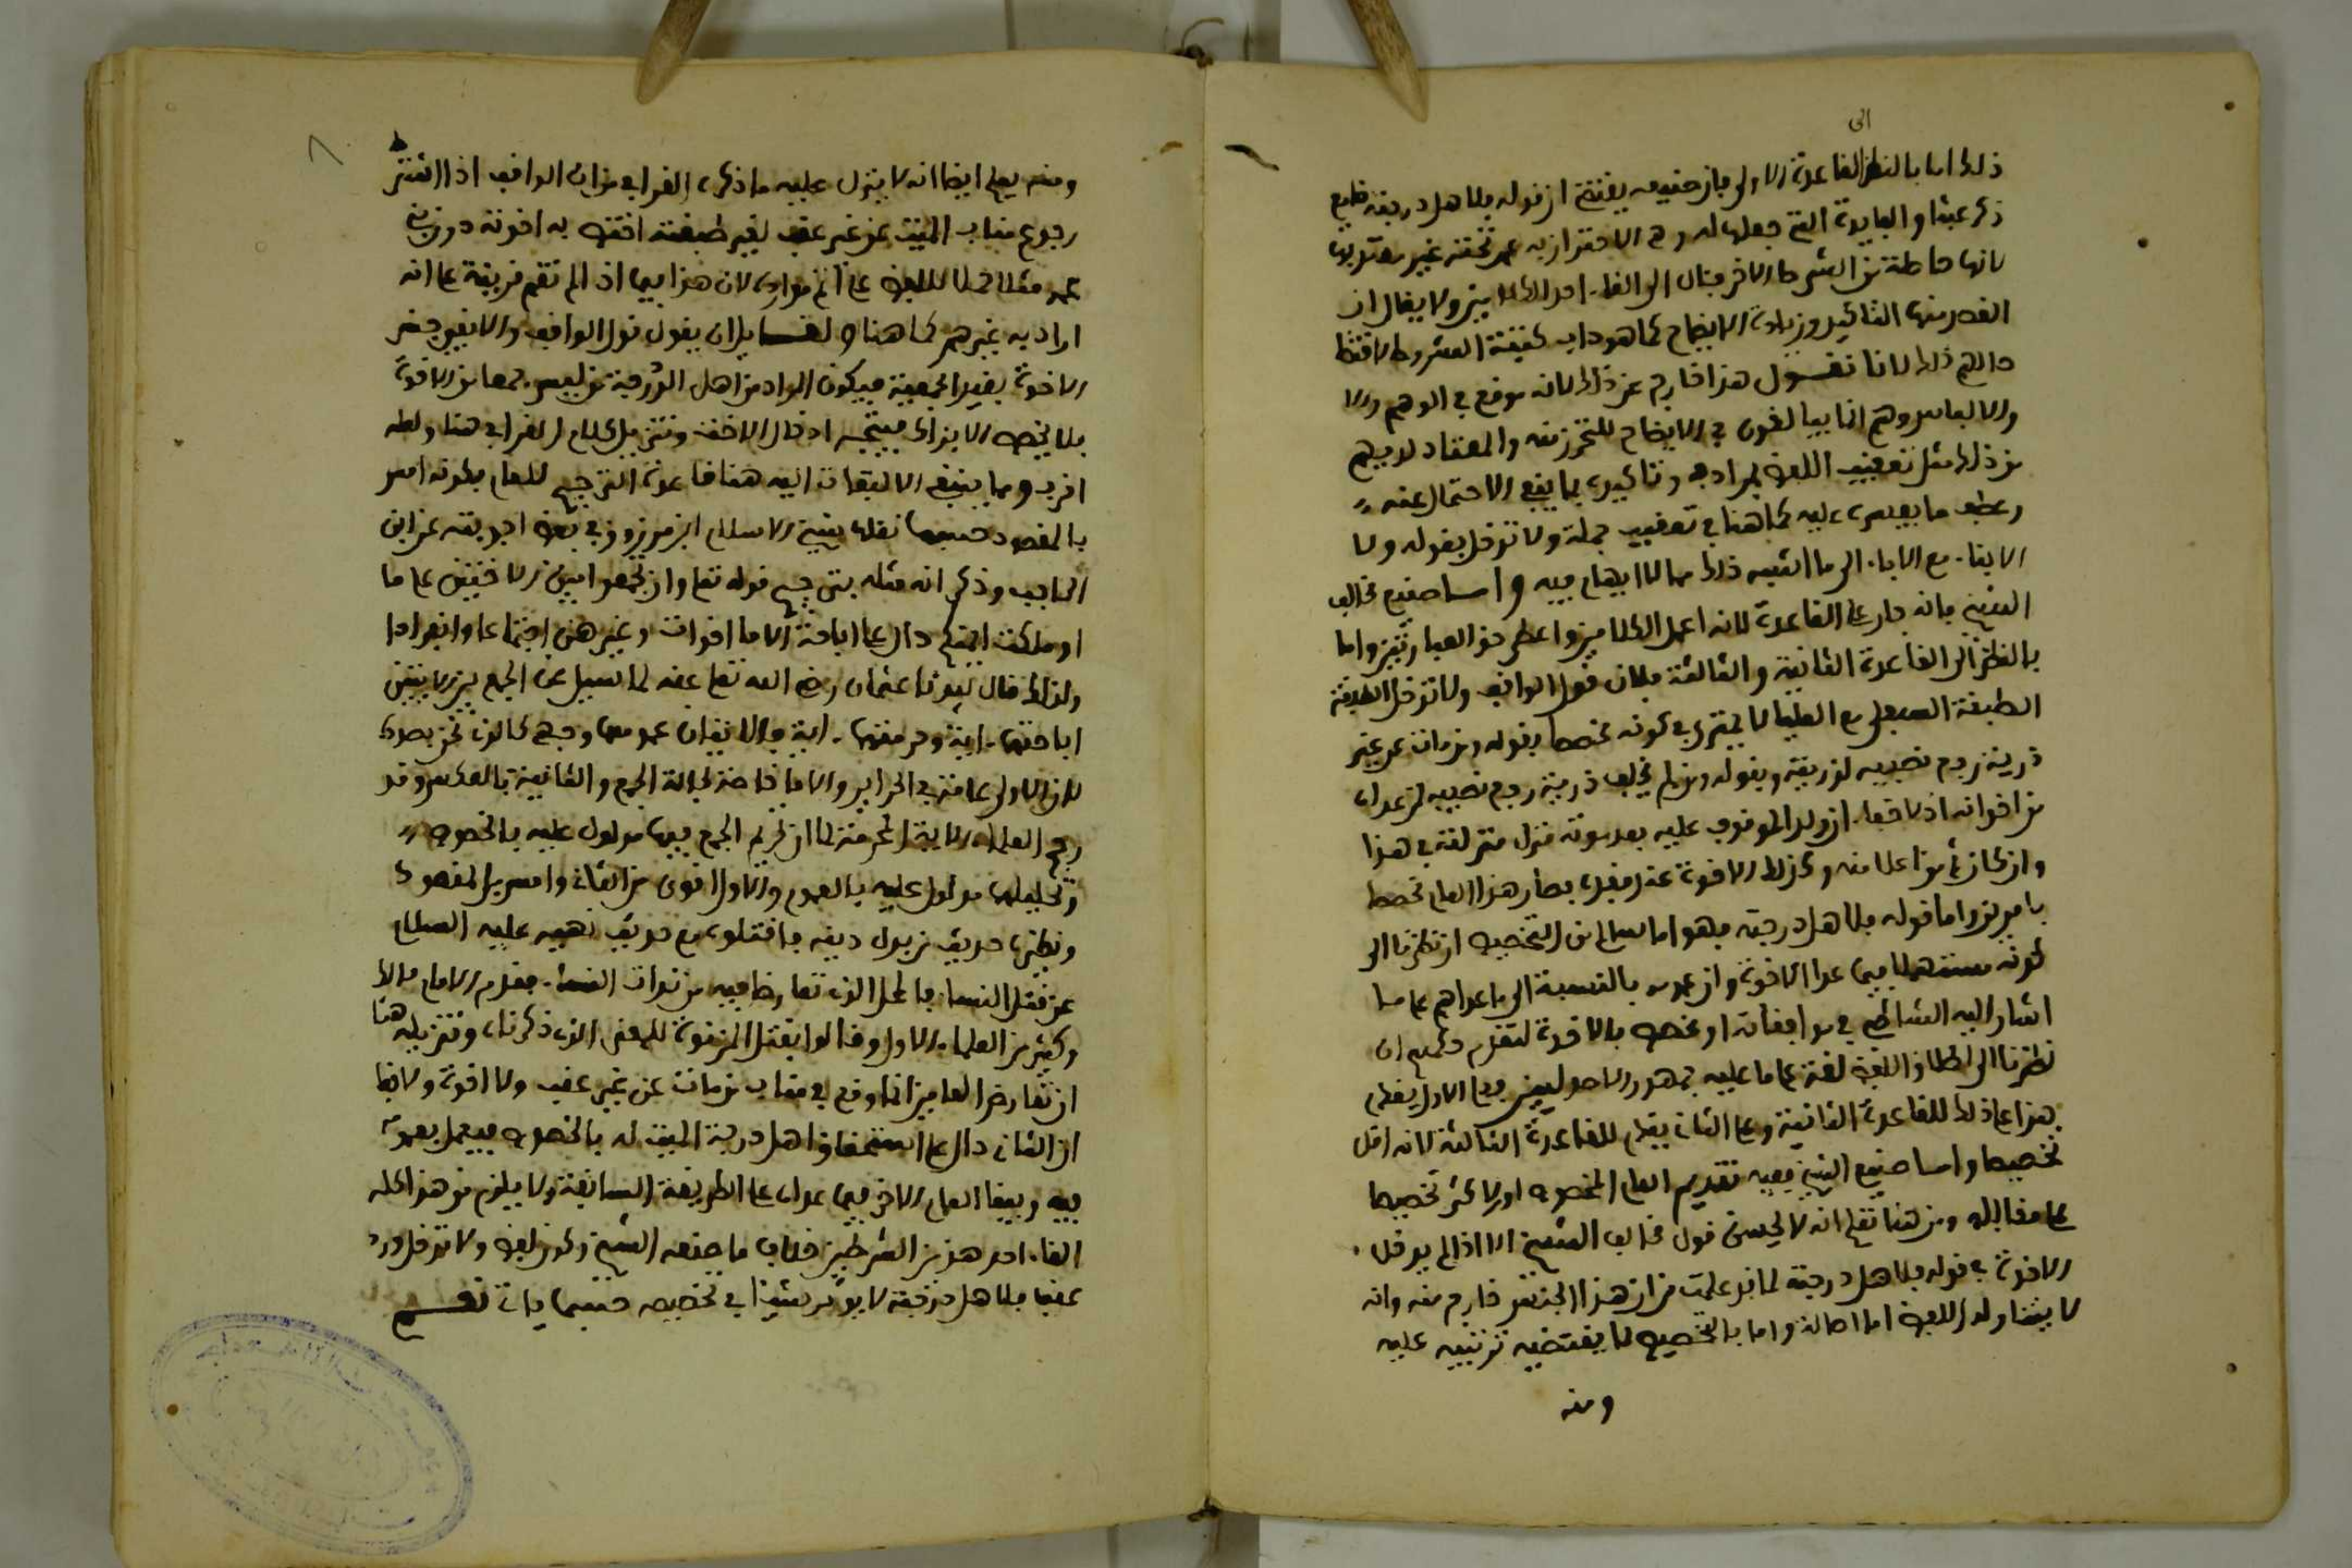 الى
ذلك اما بالنظر القاعدة الاولى فان صنيعه يقتضي ان قوله فلاهل درجته ضايع
ذكر عبثا والفايدة التي جعلها له وهي الاحتراز به عن تحته غير معتد بها
لانها حاصلة من الشرط الاخر فئال الى الغاء احد الكلامين ولا يقال ان
القصد منها التاكيد وزيادة الايضاح كما هو داب كتبة الشروط لاقتضا
حالهم ذلك لانا نقول هذا خارج عن ذلك لانه موقع في الوهم والا
والالباس وهم انما يبالغون في الايضاح للتحرز منه والمعتاد لديهم
من ذلك مثل تعقيب اللفظ بمرادفه وتاكيده بما ينفي الاحتمال عنه
وعطف ما يفسره عليه كما هنا في تعقيب جملة ولا تدخل بقوله ولا
الابناء مع الاباء الى ما اشبه ذلك مما لا ايهام فيه واما صنيع مخالف
الشيخ فانه جار على القاعدة لانه اعمل الكلامين واعطى حق العبارتين واما
بالنظر الى القاعدة الثانية والثالثة فلان قول الواقف ولا تدخل الطبقة
الطبقة السفلى مع العليا لا يمترى في كونه مخصصا بقوله ومن مات عن غير
ذرية رجع نصيبه لذريته وبقوله ومن لم يخلف ذرية رجع نصيبه لمن عداه
من اخوانه اذ لا خفاء ان ولد الموقوف عليه بعد موته منزل منزلته في هذا
وان كان ثم من اعلا منه وكذلك الاخوة عند فقده فصار هذا العام مخصصا
بامرين واما قوله فلاهل درجته فهو اما سالم من التخصيص ان نظرنا الى
كونه مستعملا فيما عدا الاخوة وان عمومه بالنسبة الى ما عداهم على ما
اشار اليه الشاطبي في موافقاته او مخصص بالاخوة لتقدم حكمهم ان
نظرنا الى اطلاق اللفظ لغة على ما عليه جمهور الاصوليين فعلى الاول يقدم
هذا على ذلك للقاعدة الثانية وعلى الثاني يقدم للقاعدة الثالثة لانه اقل
تخصيصا واما صنيع الشيخ ففيه تقديم العام المخصوص او الاكثر تخصيصا
على مقابله ومن هنا تعلم انه لا يحسن قول مخالف الشيخ الا اذا لم يدخل
الاخوة في قوله فلاهل درجته لما قد علمت من ان هذا الجنس خارج منه وانه
لا يتناوله اللفظ اما اصالة واما بالتخصيص لما يقتضيه ترتيبه عليه
ومنه
ومنه يعلم ايضا انه لا يتنزل عليه ما ذكره القرافي من ان الواقف اذا اشترط
رجوع مناب الميت عن غير عقب لغير طبقته اختص به اخوته دون بني
عمه مثلا حملا للفظ على اتم موارده لان هذا فيما اذا لم تقم قرينة على انه
اراد به غيرهم كما هنا ولقايل ان يقول قول الواقف والا بقي بعض
الاخوة يفيد الجمعية فيكون المراد من اهل الدرجة من ليس جمعا من الاخوة
فلا يخص الا بذاك فيتجه ادخال الاخت وتنزيل كلام القرافي هنا ولعله
اقرب ومما ينبغي الالتفات اليه هنا قاعدة الترجيح للعام بكونه امس
بالمقصود حسبما نقله شيخ الاسلام ابن مرزوق في بعض اجوبته عن ابن
الحاجب وذكر انه مثله بترجيح قوله تعلى وان تجمعوا بين الاختين على ما
او ملكت ايمنكم دال على اباحة الاما اخوات وغيرهن اجتماعا وانفرادا
ولذلك قال سيدنا عثمان رضي الله تعلى عنه لما سيل عن الجمع بين الاختين
اباحتهما ءاية وحرمتهما ءاية والايتان عمومهما وجهي كالذي نحن بصدده
لان الاولى عامة في الحراير والاما خاصة بحالة الجمع والثانية بالعكس وقد
رجح العلماء الاية المحرمة لما ان تحريم الجمع فيها مدلول عليه بالخصوص
وتحليلها مدلول عليه بالعموم والاول اقوى من الثاني وامس بالمقصود
ونظيرها حديث من بدل دينه فاقتلوه مع حديث نهيه عليه السلام
عن قتل النساء فالمحل الذي تعارضا فيه مرتدات النساء فقدم الامام مالك
وكثير من العلماء الاول وقالوا بقتل المرتدة للمعنى الذي ذكرناه وتنزيله هنا
ان تعارض العامين انما وقع في مناب من مات عن غير عقب ولا اخوة ولا خفا
ان الثاني دال على استحقاق اهل درجة الميت له بالخصوص فيعمل بعمومه
فيه ويبقا العام الاخر فيما عداه على الطريقة السابقة ولا يلزم من هذا كله
الغاء احد هذين الشرطين خلاف ما صنعه الشيخ وكون لفظ ولا تدخل ورد
عقب فلاهل درجته لا يوثر شيئا في تخصيصه حسبما ياتي تقسيم